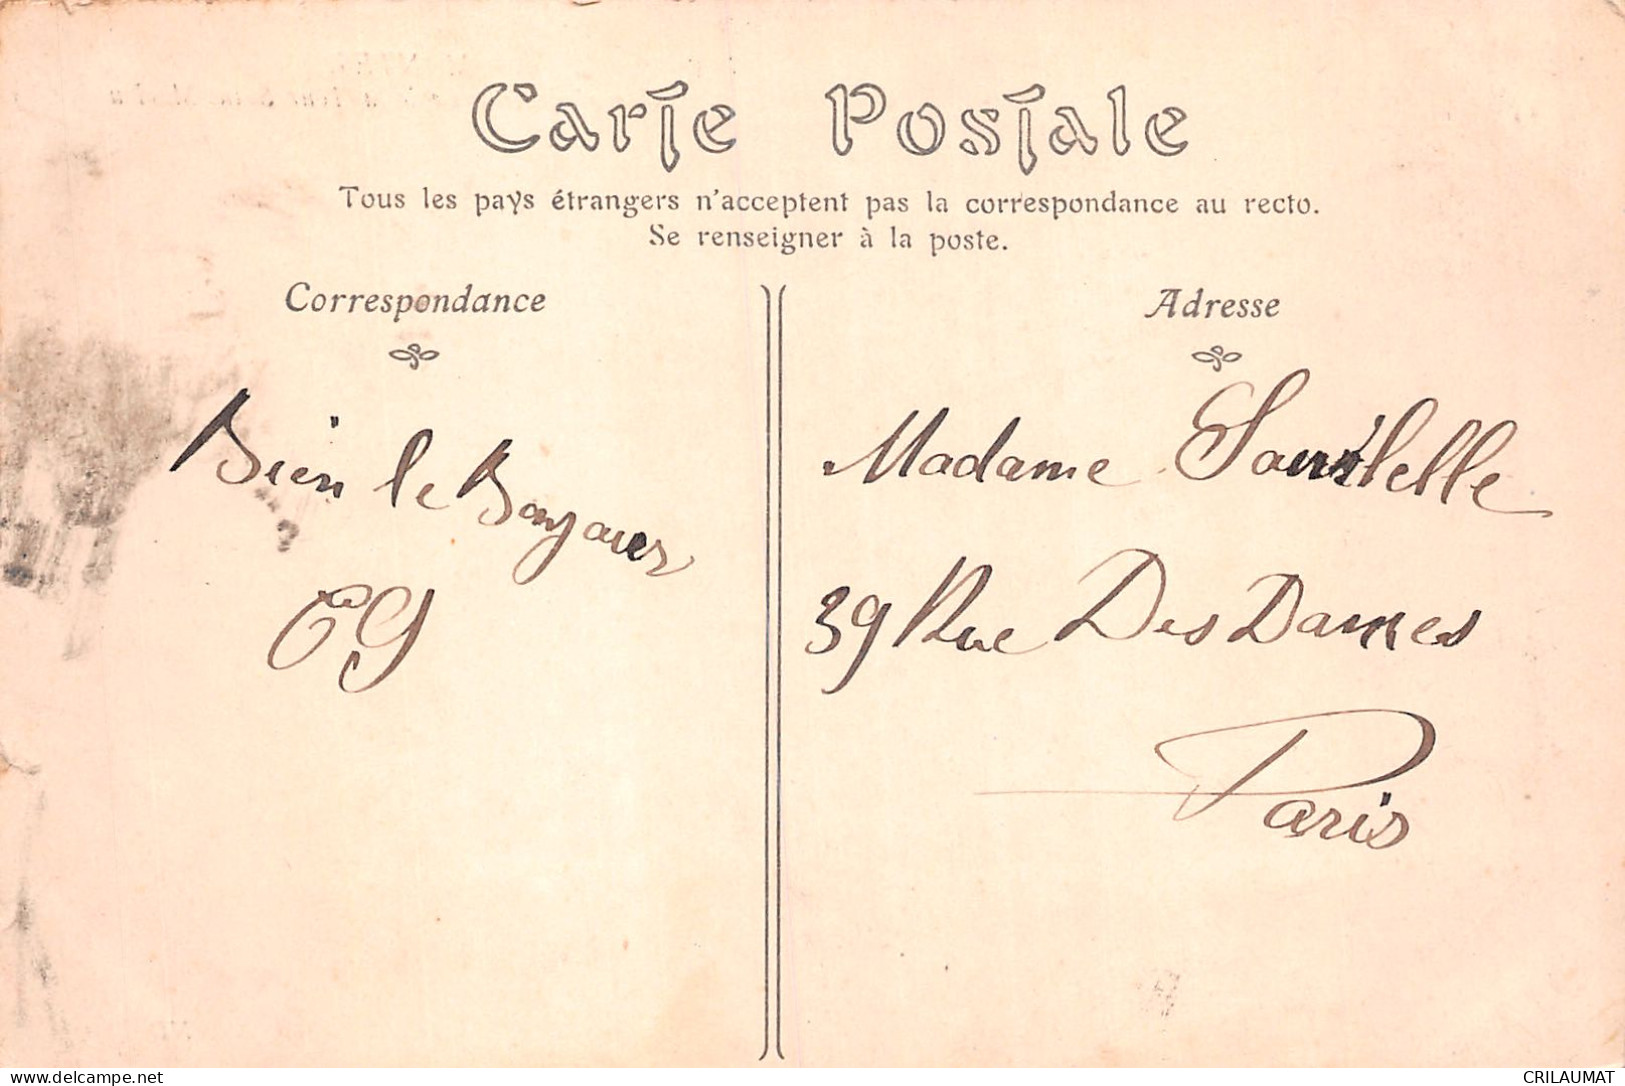 Carte Postale
Tous les pays étrangers n'acceptent pas la correspondance au recto.
Se renseigner à la poste.
Correspondance
Adresse
Bien le
EG
Madame
39 Rue Des Dames
Paris
delcampe.net
CRILAUMAT